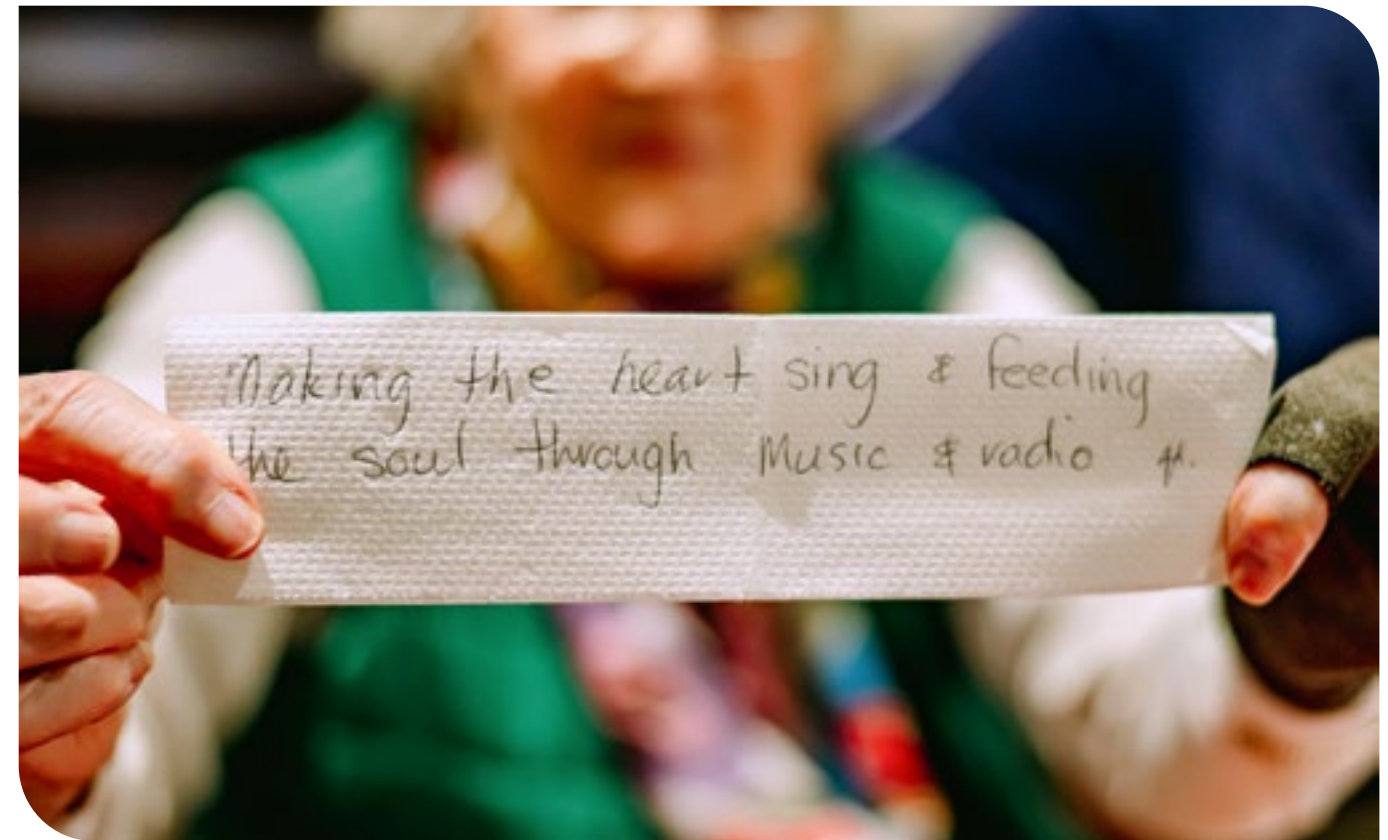 Making the heart sing & feeding
the soul through Music & radio